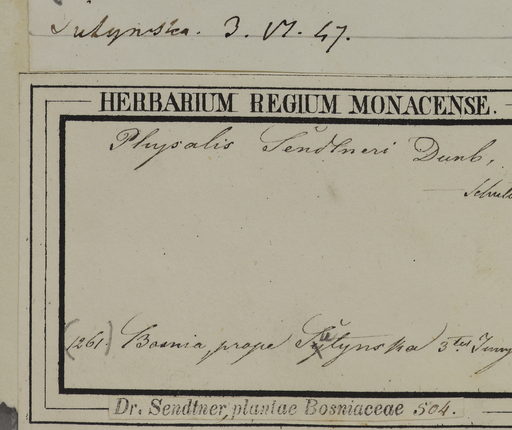 Sutynska. 3. VI. 47.
HERBARIUM REGIUM MONACENSE.
Physalis Sendtneri Dunb,
(1261.) Bosnia prope Sutynska 3tes Juny
Dr. Sendtner, plantae Bosniaceae 504.